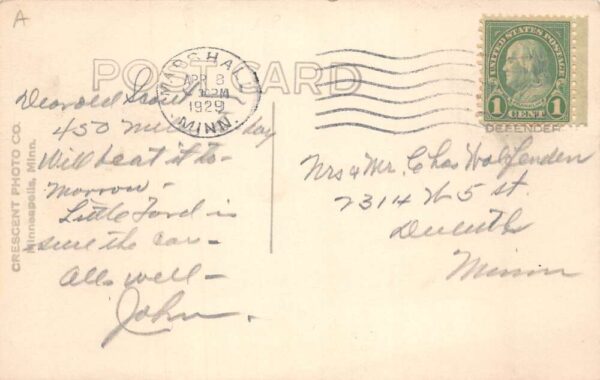 A
POST CARD
MARSHALL
APR 8
PM
1929
MINN.
UNITED STATES POSTAGE
FRANKLIN
1 CENT 1
DEFENDER
CRESCENT PHOTO CO.
Minneapolis, Minn.
Dear old
450 day
Will beat it to-
morrow -
Little Ford is
sure the car -
All's well -
John.
Mrs & Mr. Chas Wolfenden
2314 W 5 st.
Duluth
Minn